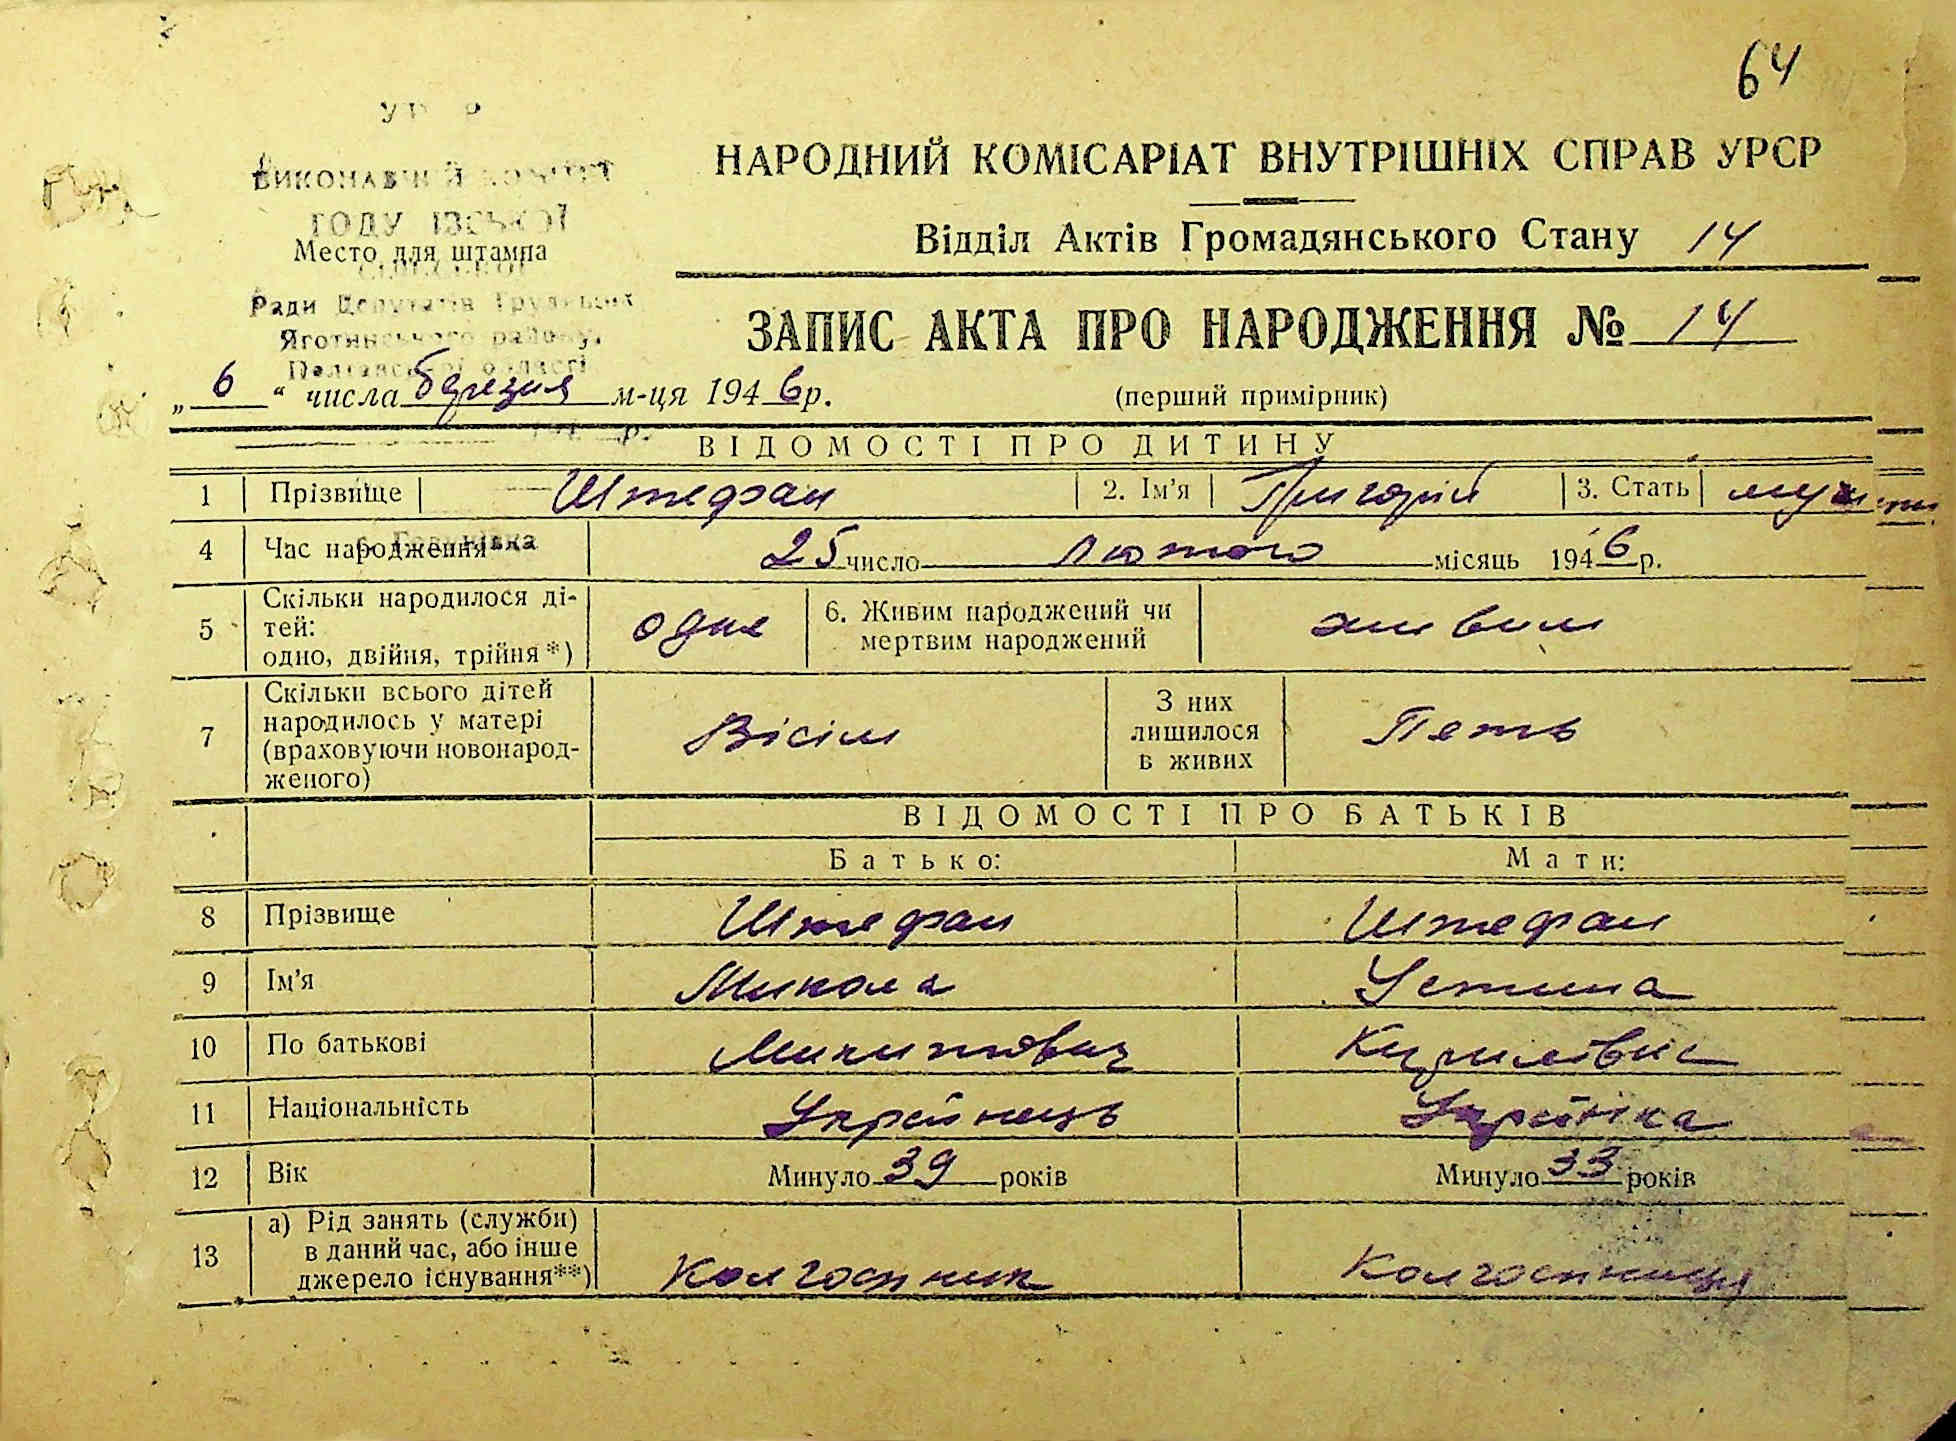 64
НАРОДНИЙ КОМІСАРІАТ ВНУТРІШНІХ СПРАВ УРСР
Відділ Актів Громадянського Стану 14
Место для штампа
Ради Депутатів
Яготинського району,
Полтавської області
ЗАПИС АКТА ПРО НАРОДЖЕННЯ № 14
„ 6 “ числа березня м-ця 1946 р.
(перший примірник)
ВІДОМОСТІ ПРО ДИТИНУ
1 Прізвище Штефан 2. Ім'я Григорій 3. Стать
4 Час народження 25 число лютого місяць 1946 р.
5 Скільки народилося ді-
тей:
одно, двійня, трійня*)
одне
6. Живим народжений чи
мертвим народжений
живим
7 Скільки всього дітей
народилось у матері
(враховуючи новонарод-
женого)
Вісім
З них
лишилося
в живих
Пять
ВІДОМОСТІ ПРО БАТЬКІВ
Батько: Мати:
8 Прізвище Штефан Штефан
9 Ім'я Микола Устина
10 По батькові Микитович
11 Національність Українець Українка
12 Вік Минуло 39 років Минуло 33 років
13 а) Рід занять (служби)
в даний час, або інше
джерело існування**)
Колгоспник Колгоспниця